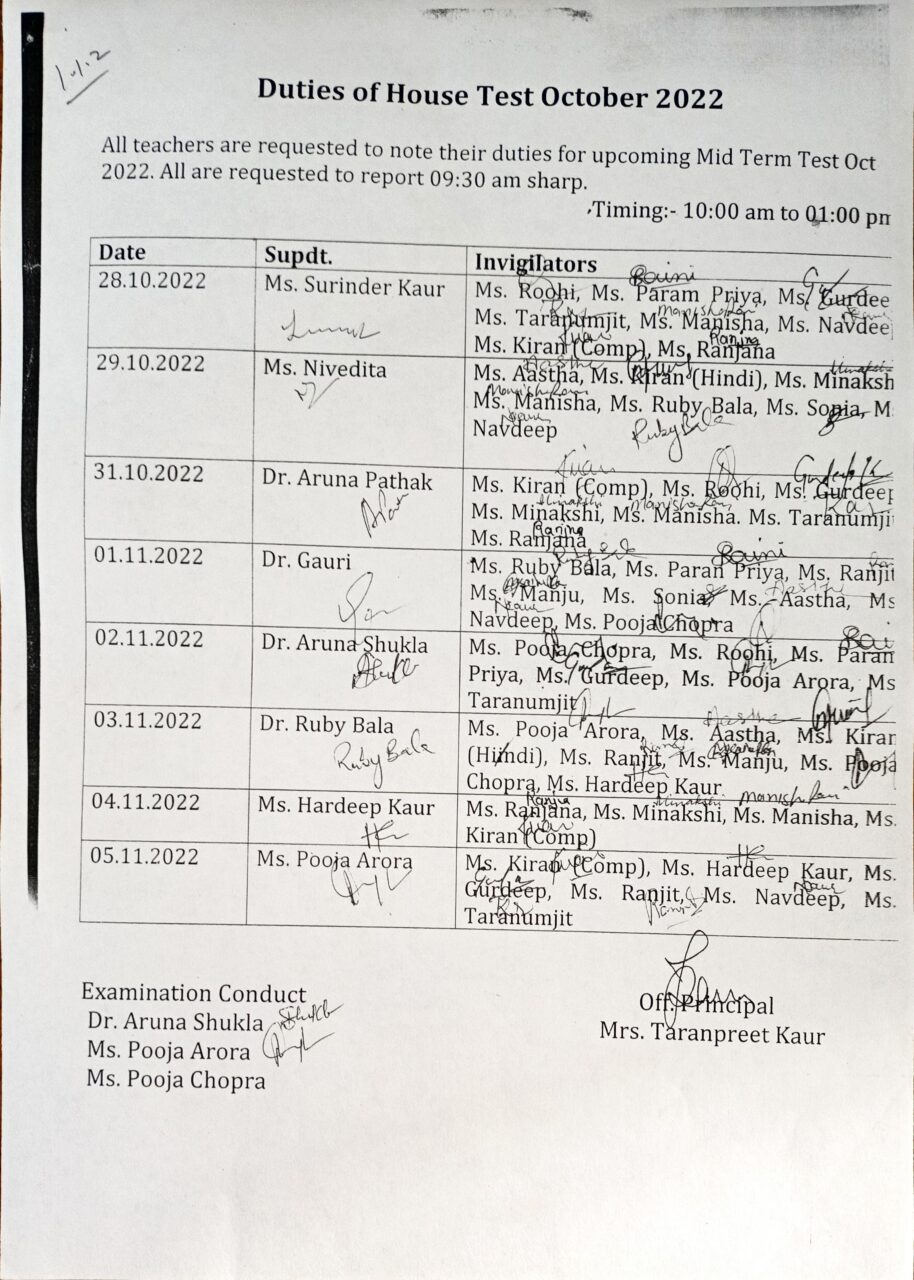 1.1.2
Duties of House Test October 2022
All teachers are requested to note their duties for upcoming Mid Term Test Oct
2022. All are requested to report 09:30 am sharp.
Timing:- 10:00 am to 01:00 pm
Date Supdt. Invigilators
28.10.2022 Ms. Surinder Kaur Ms. Roohi, Ms. Param Priya, Ms. Gurdee
Ms. Taranumjit, Ms. Manisha, Ms. Navdee
Ms. Kiran (Comp), Ms. Ranjana
29.10.2022 Ms. Nivedita Ms. Aastha, Ms. Kiran (Hindi), Ms. Minaksh
Ms. Manisha, Ms. Ruby Bala, Ms. Sonia, M
Navdeep
Ruby Bala
31.10.2022 Dr. Aruna Pathak Ms. Kiran (Comp), Ms. Roohi, Ms. Gurdeep
Ms. Minakshi, Ms. Manisha. Ms. Taranumji
Ms. Ranjana
01.11.2022 Dr. Gauri Ms. Ruby Bala, Ms. Paran Priya, Ms. Ranjit
Ms. Manju, Ms. Sonia, Ms. Aastha, Ms
Navdeep, Ms. Pooja Chopra
02.11.2022 Dr. Aruna Shukla Ms. Pooja Chopra, Ms. Roohi, Ms. Paran
Priya, Ms. Gurdeep, Ms. Pooja Arora, Ms
Taranumjit
03.11.2022 Dr. Ruby Bala Ms. Pooja Arora, Ms. Aastha, Ms. Kiran
(Hindi), Ms. Ranjit, Ms. Manju, Ms. Pooja
Chopra, Ms. Hardeep Kaur
Ruby Bala
04.11.2022 Ms. Hardeep Kaur Ms. Ranjana, Ms. Minakshi, Ms. Manisha, Ms.
Kiran (Comp)
05.11.2022 Ms. Pooja Arora Ms. Kiran (Comp), Ms. Hardeep Kaur, Ms.
Gurdeep, Ms. Ranjit, Ms. Navdeep, Ms.
Taranumjit
Examination Conduct
Dr. Aruna Shukla
Ms. Pooja Arora
Ms. Pooja Chopra
Off. Principal
Mrs. Taranpreet Kaur